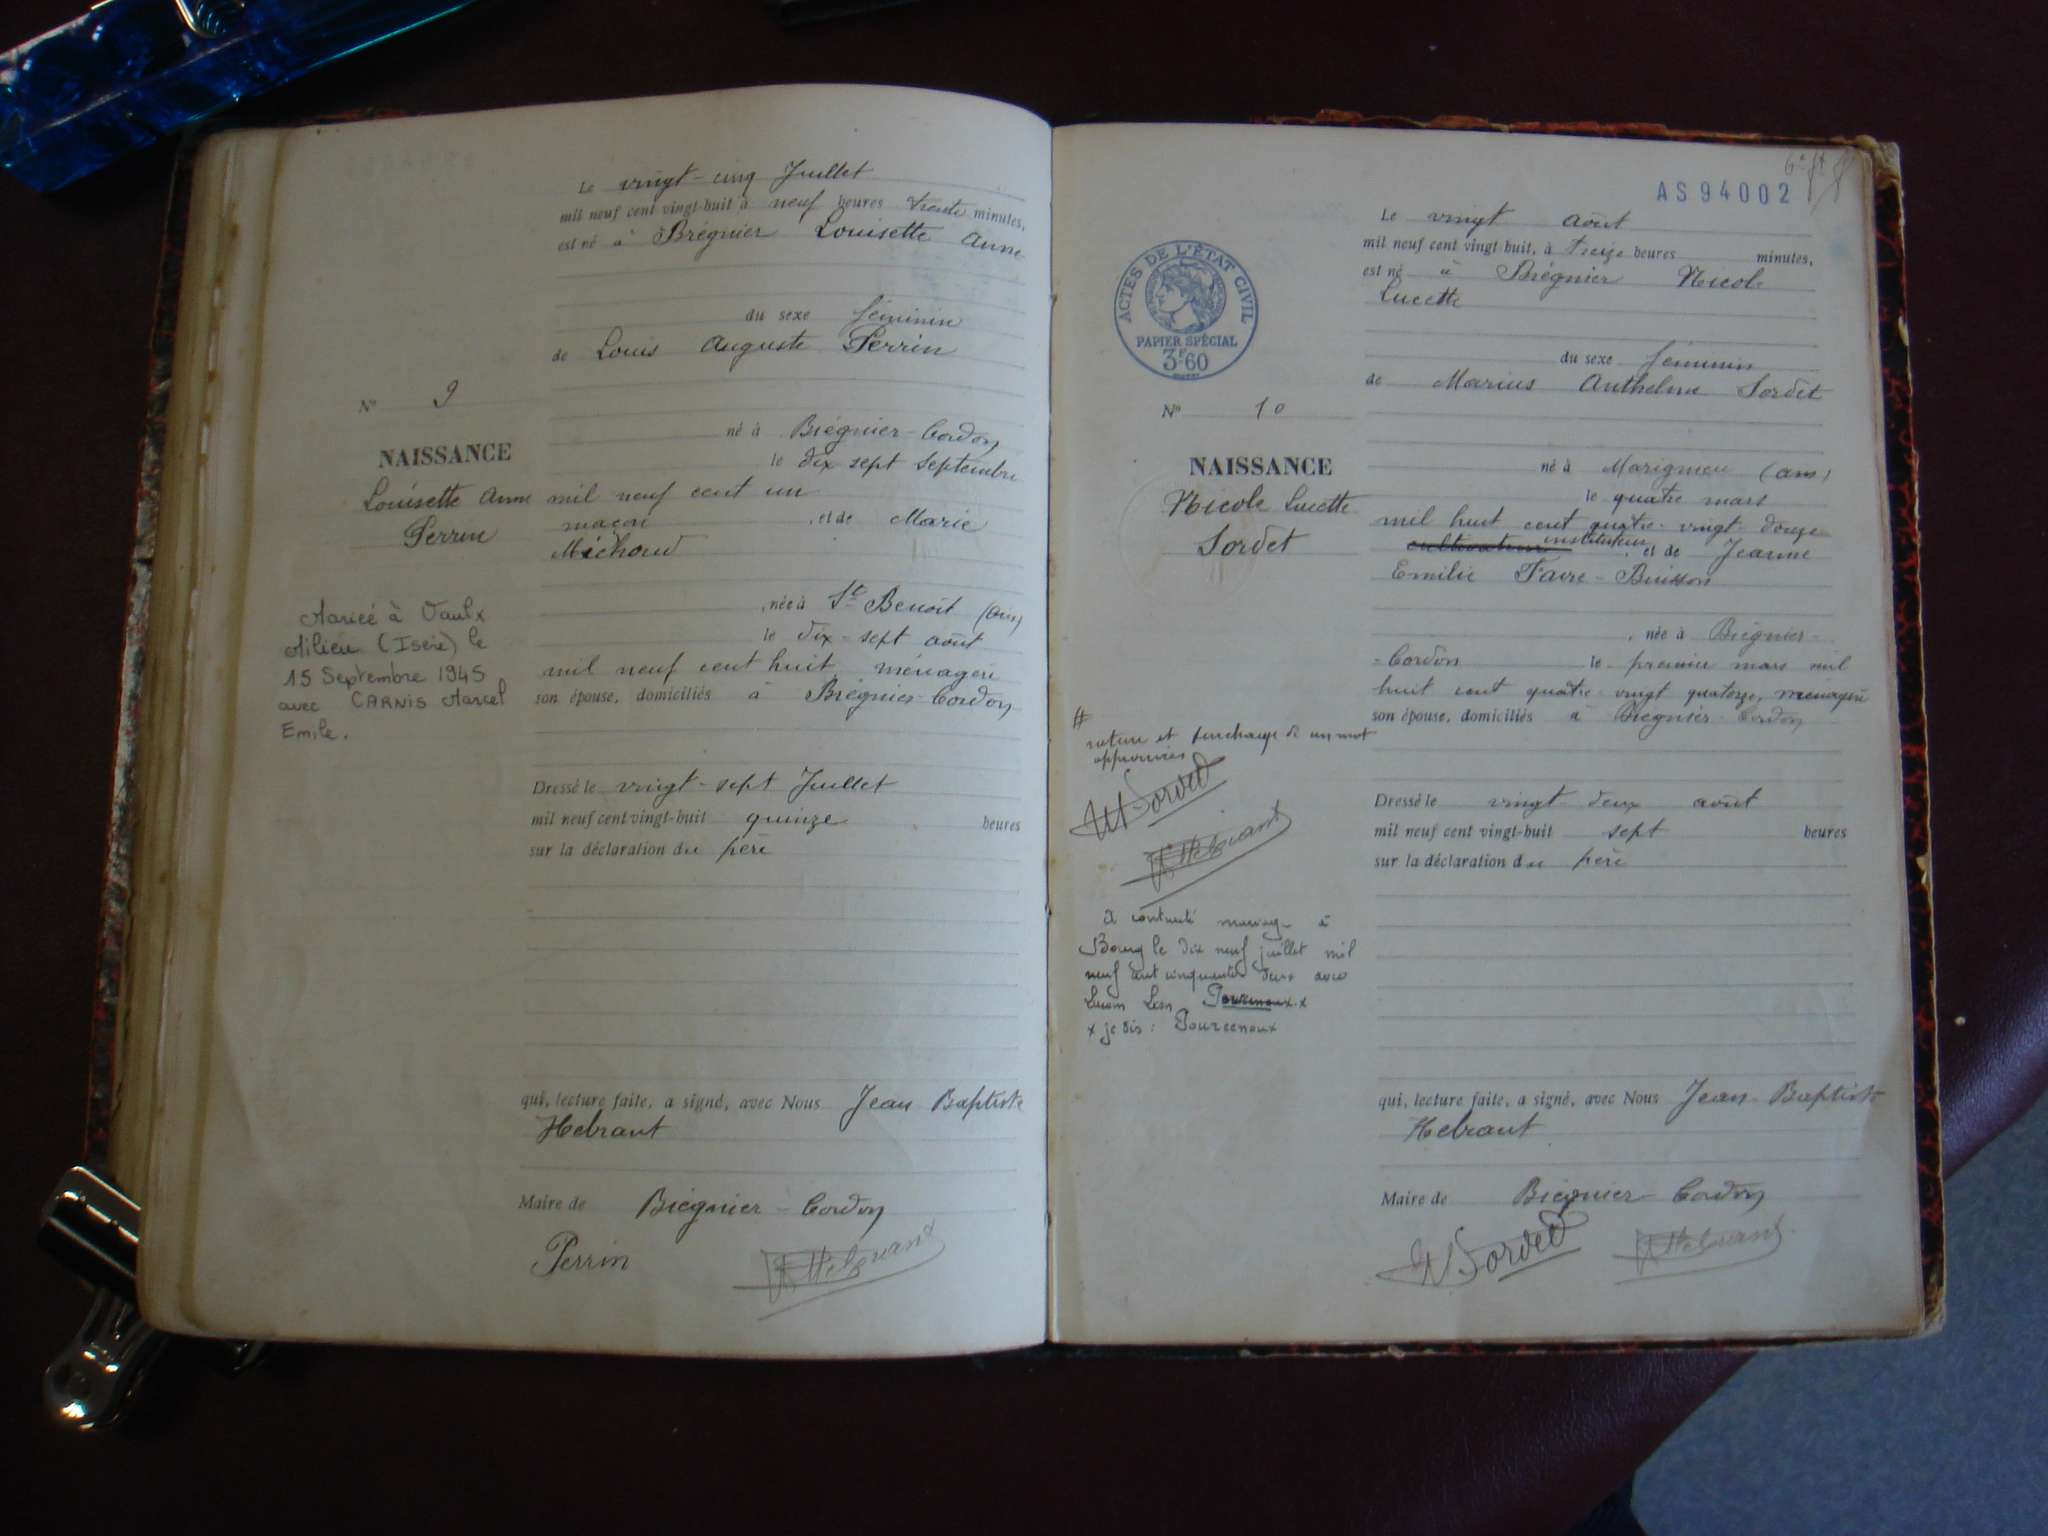 Le vingt-cinq Juillet
mil neuf cent vingt-huit à neuf heures trente minutes,
est né à Brégnier Louisette Anne
du sexe féminin
de Louis Auguste Perrin
né à Brégnier-Cordon
le dix sept Septembre
mil neuf cent un
maçon, et de Marie
Michoud
, née à St Benoit (Ain)
le dix-sept août
mil neuf cent huit, ménagère
son épouse, domiciliés à Brégnier-Cordon
Dressé le vingt-sept Juillet
mil neuf cent vingt-huit quinze heures
sur la déclaration du père
qui, lecture faite, a signé, avec Nous Jean Baptiste
Hebrant
Maire de Brégnier-Cordon
Perrin
Hebrant
No 9
NAISSANCE
Louisette Anne
Perrin
Mariée à Vaulx
Milieu (Isère) le
15 Septembre 1945
avec CARNIS Marcel
Emile.
6e ft
AS94002
Le vingt août
mil neuf cent vingt-huit, à treize heures minutes,
est né à Brégnier Nicole
Lucette
du sexe féminin
de Marius Anthelme Sordet
né à Marignieu (Ain)
le quatre mars
mil huit cent quatre-vingt-douze
cultivateur instituteur, et de Jeanne
Emilie Favre-Buisson
, née à Brégnier-
-Cordon le premier mars mil
huit cent quatre-vingt quatorze, ménagère
son épouse, domiciliés à Brégnier-Cordon
Dressé le vingt-deux août
mil neuf cent vingt-huit sept heures
sur la déclaration du père
qui, lecture faite, a signé, avec Nous Jean-Baptiste
Hebrant
Maire de Brégnier-Cordon
M Sordet
Hebrant
ACTES DE L'ÉTAT CIVIL
PAPIER SPÉCIAL
3F60
No 10
NAISSANCE
Nicole Lucette
Sordet
#
rature et surcharge de un mot
approuvées
M Sordet
Hebrant
A contracté mariage à
Bourg le dix neuf juillet mil
neuf cent cinquante deux avec
Lucien Léon Pourcenoux x
x je dis : Pourcenoux